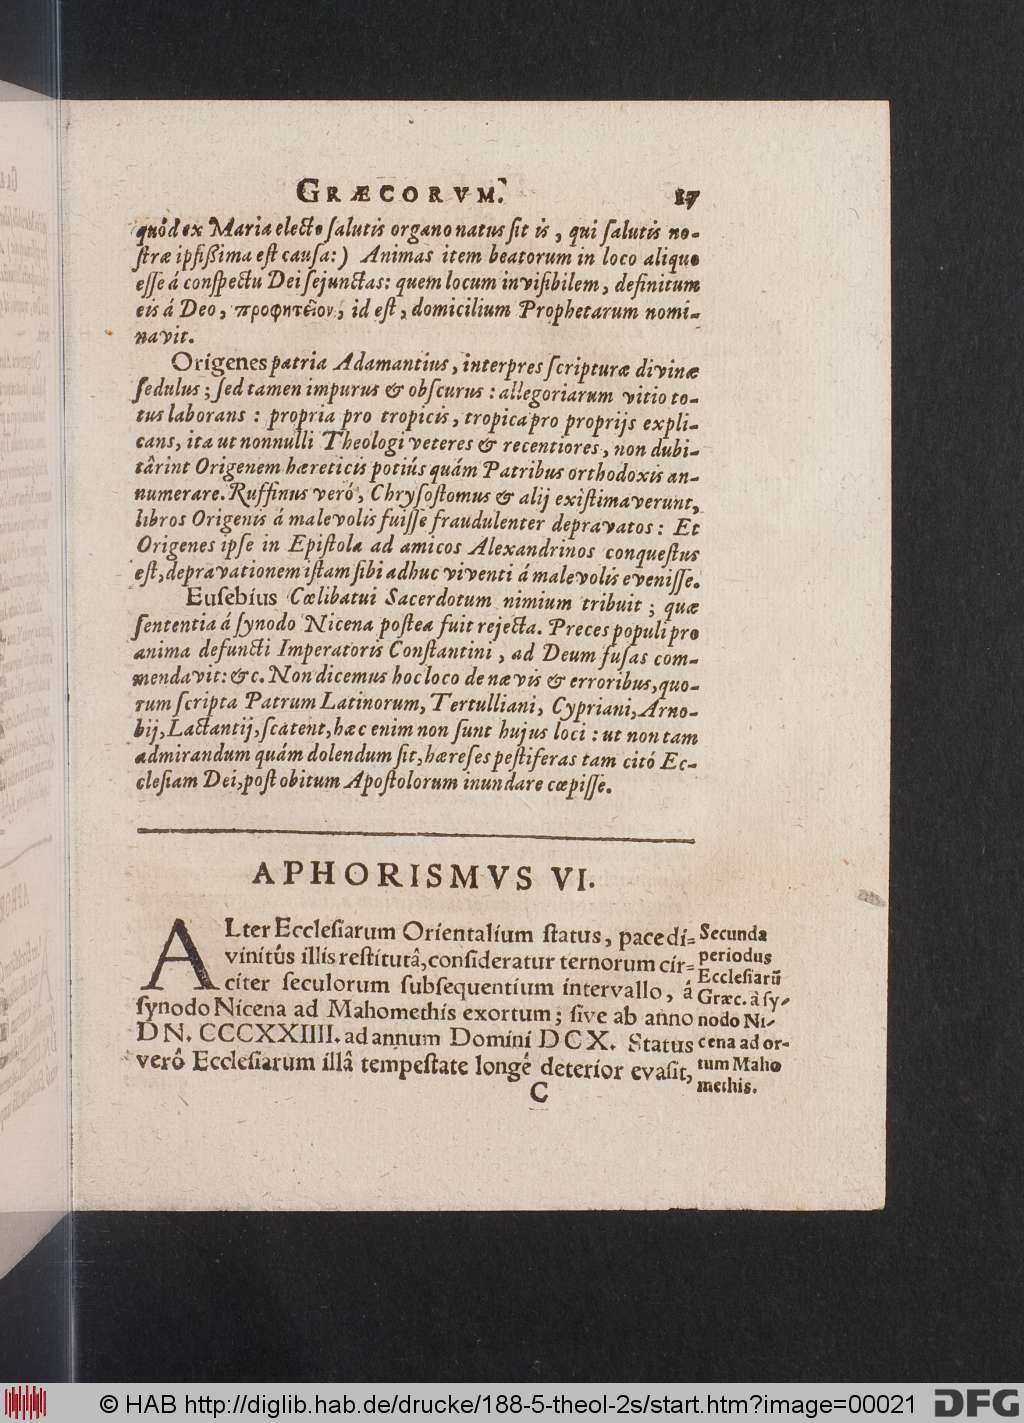 GRÆCORVM. 17
quód ex Maria electo salutis organo natus sit is, qui salutis no-
stræ ipsißima est causa:) Animas item beatorum in loco aliquo
esse á conspectu Dei sejunctas: quem locum invisibilem, definitum
eis á Deo, προφητεῖον, id est, domicilium Prophetarum nomi-
navit.
Orígenes patria Adamantius, interpres scripturæ divinæ
sedulus; sed tamen impurus & obscurus: allegoriarum vitio to-
tus laborans: propria pro tropicis, tropica pro proprijs expli-
cans, ita ut nonnulli Theologi veteres & recentiores, non dubi-
târint Origenem hæreticis potiús quám Patribus orthodoxis an-
numerare. Ruffinus veró, Chrysostomus & alij existimaverunt,
libros Origenis á malevolis fuisse fraudulenter depravatos: Et
Origenes ipse in Epistola ad amicos Alexandrinos conquestus
est, depravationem istam sibi adhuc viventi á malevolis evenisse.
Eusebíus Cœlibatui Sacerdotum nimium tribuit; quæ
sententia á synodo Nicena postea fuit rejecta. Preces populi pro
anima defuncti Imperatoris Constantini, ad Deum fusas com-
mendavit: &c. Non dicemus hoc loco de nævis & erroribus, quo-
rum scripta Patrum Latinorum, Tertulliani, Cypriani, Arno-
bij, Lactantij, scatent, hæc enim non sunt hujus loci: ut non tam
admirandum quám dolendum sit, hæreses pestiferas tam citó Ec-
clesiam Dei, post obitum Apostolorum inundare cœpisse.
APHORISMVS VI.
ALter Ecclesiarum Orientalíum status, pace di-
vinitús illis restitutâ, consideratur ternorum cir-
citer seculorum subsequentium intervallo, á
synodo Nicena ad Mahomethis exortum; sive ab anno
DN. CCCXXIIII. ad annum Domini DCX. Status
verô Ecclesiarum illâ tempestate longé deterior evasit,
Secunda
periodus
Ecclesiarū
Græc. à sy-
nodo Ni-
cena ad or-
tum Maho
methis.
C
© HAB http://diglib.hab.de/drucke/188-5-theol-2s/start.htm?image=00021
DFG